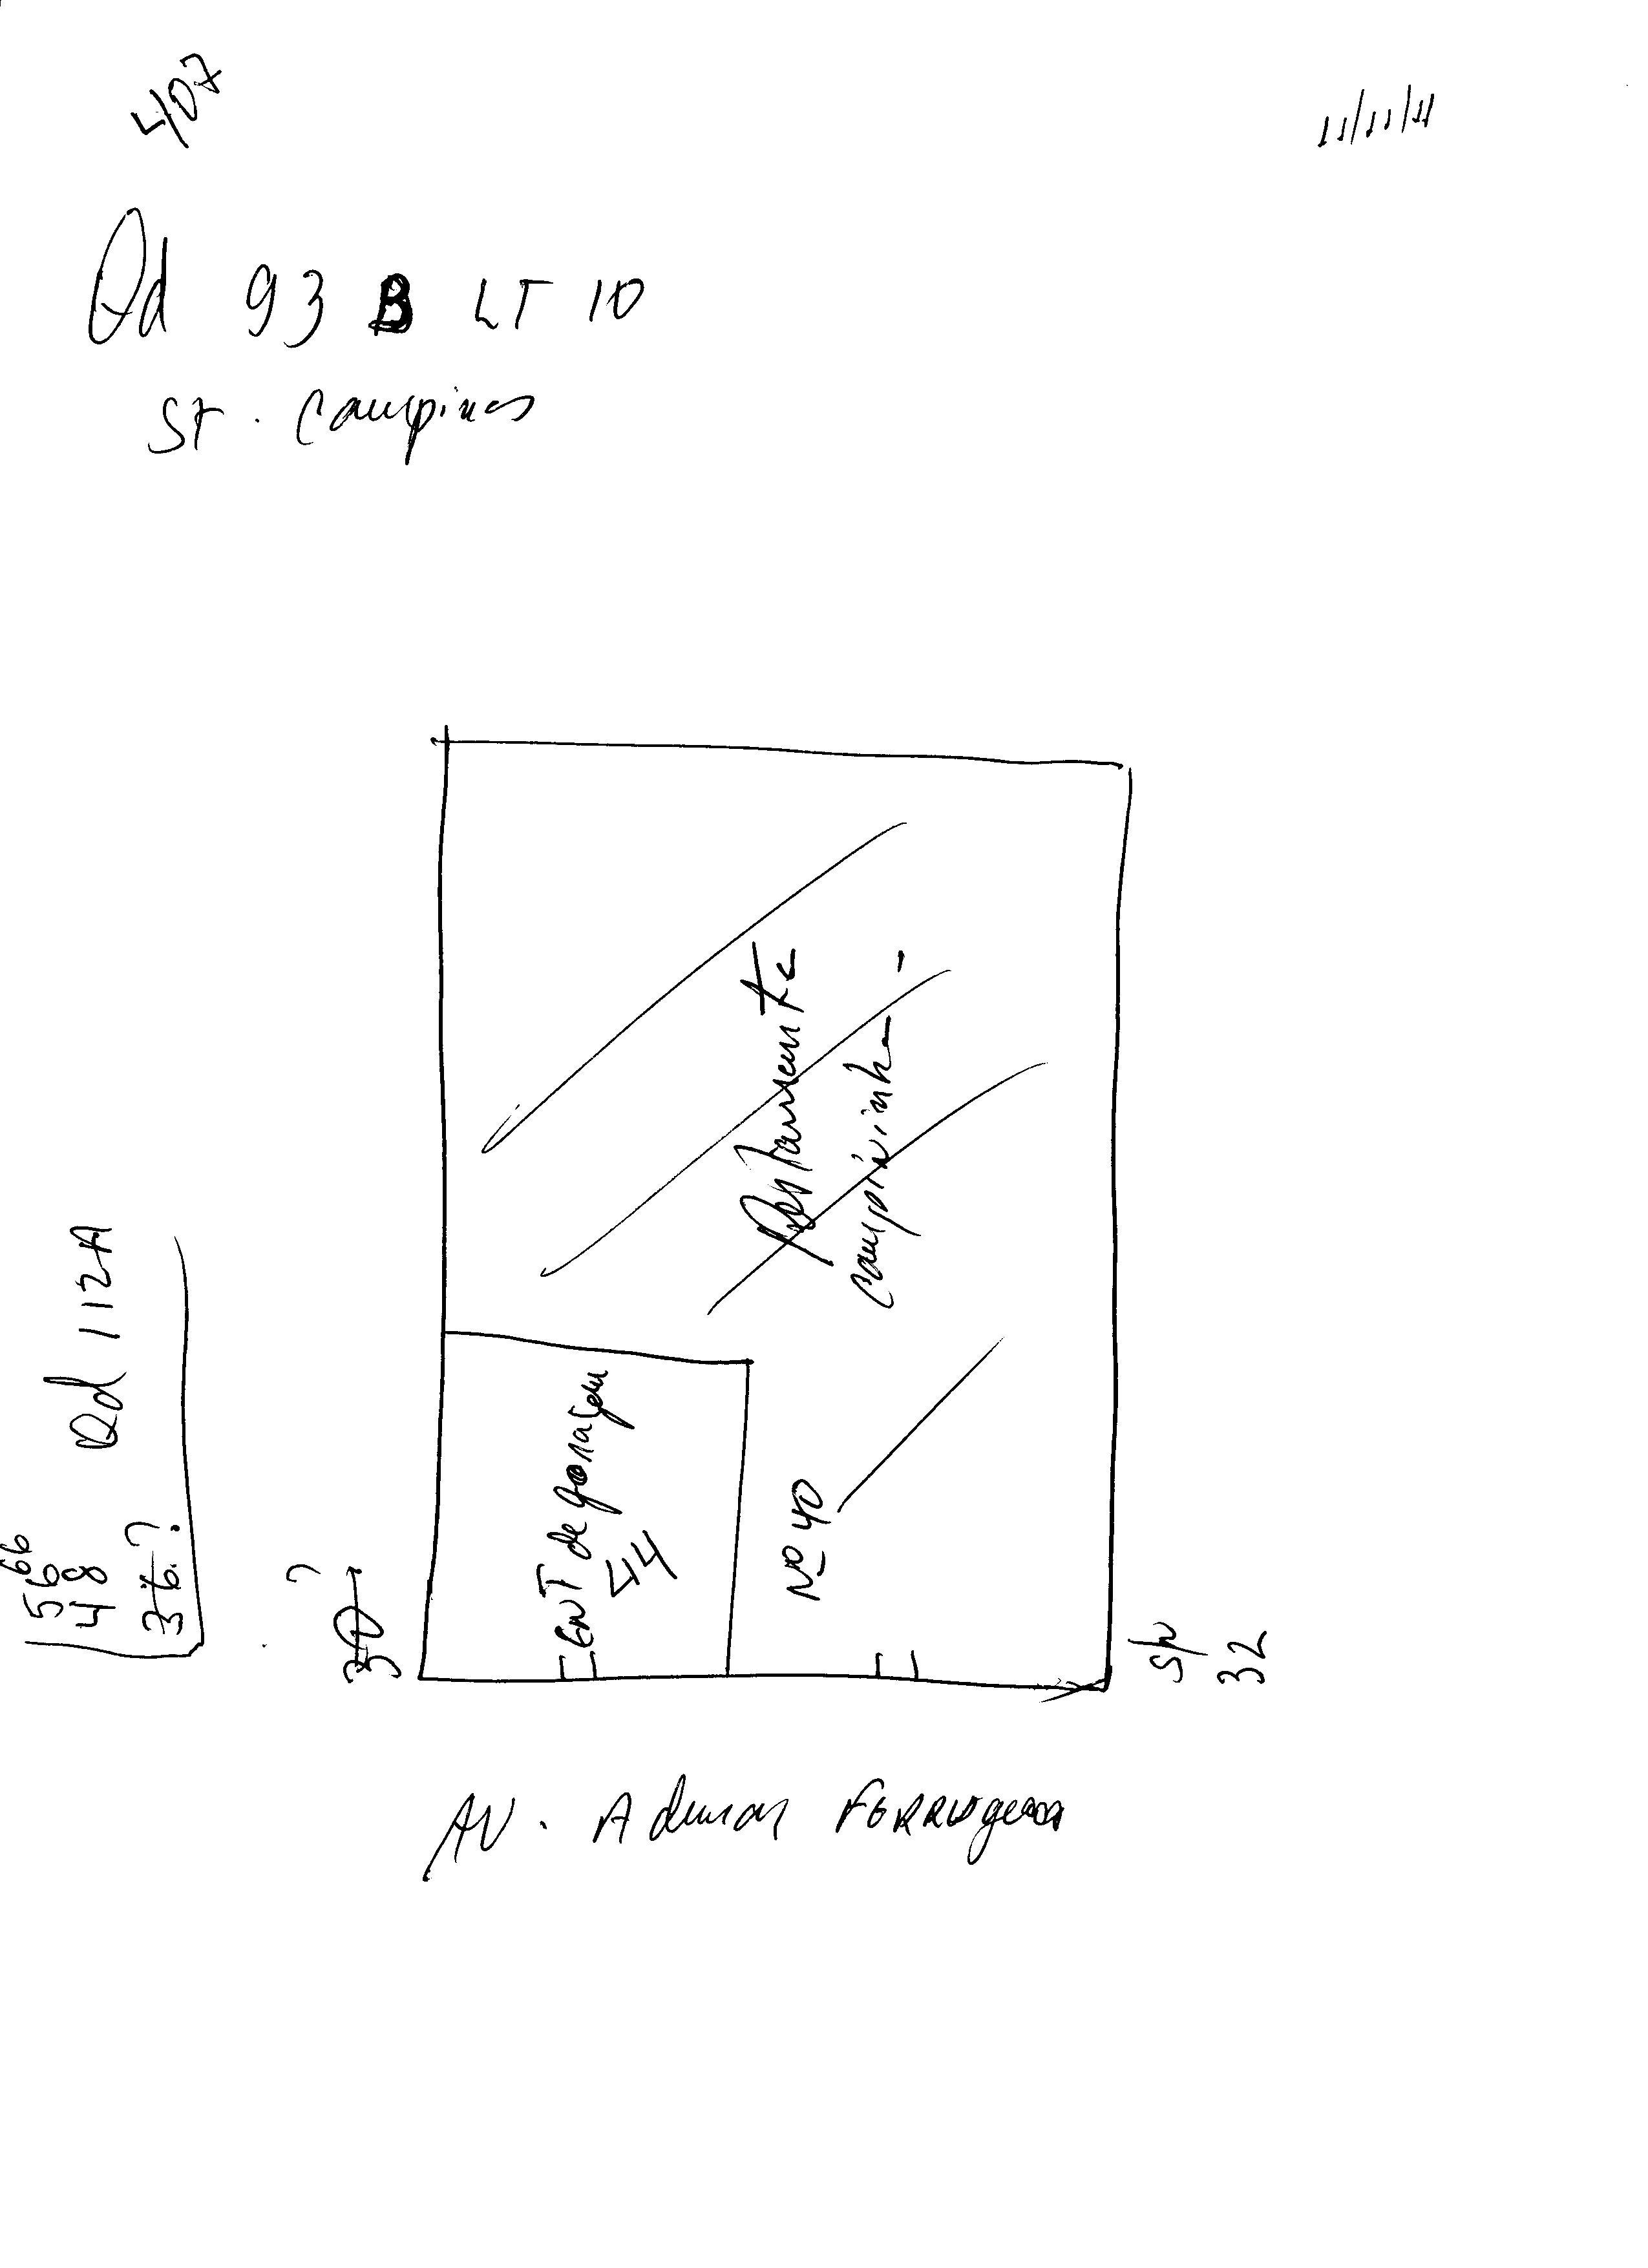 407
11/11/11
Qd 93 B LT 10
St. Campinas
Restaurante
Campininha
ENT de garagem
44
Nº 40
Qd 112A
66
56
48
36.?
30 ?
S/N
32
AV. Ademar Ferrugem